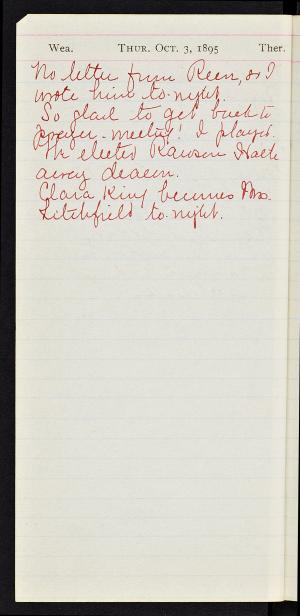 Wea. THUR. OCT. 3, 1895 Ther.
No letter from Reen, so I
wrote him to-night.
So glad to get back to
prayer-meeting! I played.
We elected Rawson
away deacon.
Clara King becomes Mrs.
Litchfield to-night.